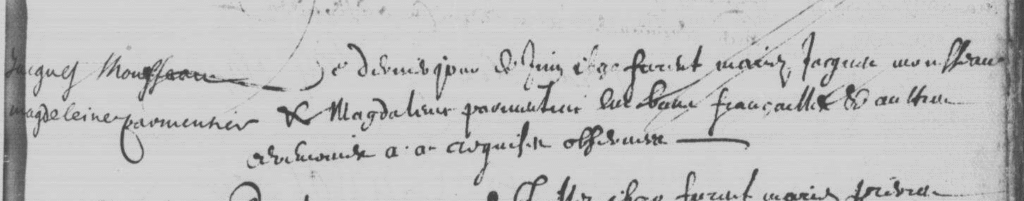 Jacques Mousseau
magdeleine parmentier
Le dernier jour de Juin 1690 furent mariez Jacques mousseau
& Magdaleine parmentier les bans françailles & aultres
ceremonies a ce requises observees
furent mariez